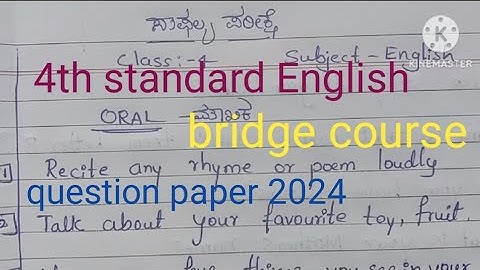 ಸಾಫಲ್ಯ ಪರೀಕ್ಷೆ
KINEMASTER
Class:-4 Subject - English
4th standard English
ORAL - ಮೌಖಿಕ
bridge course
1] Recite any rhyme or poem loudly
question paper 2024
2] Talk about your favourite toy, fruit.
five things you see in your